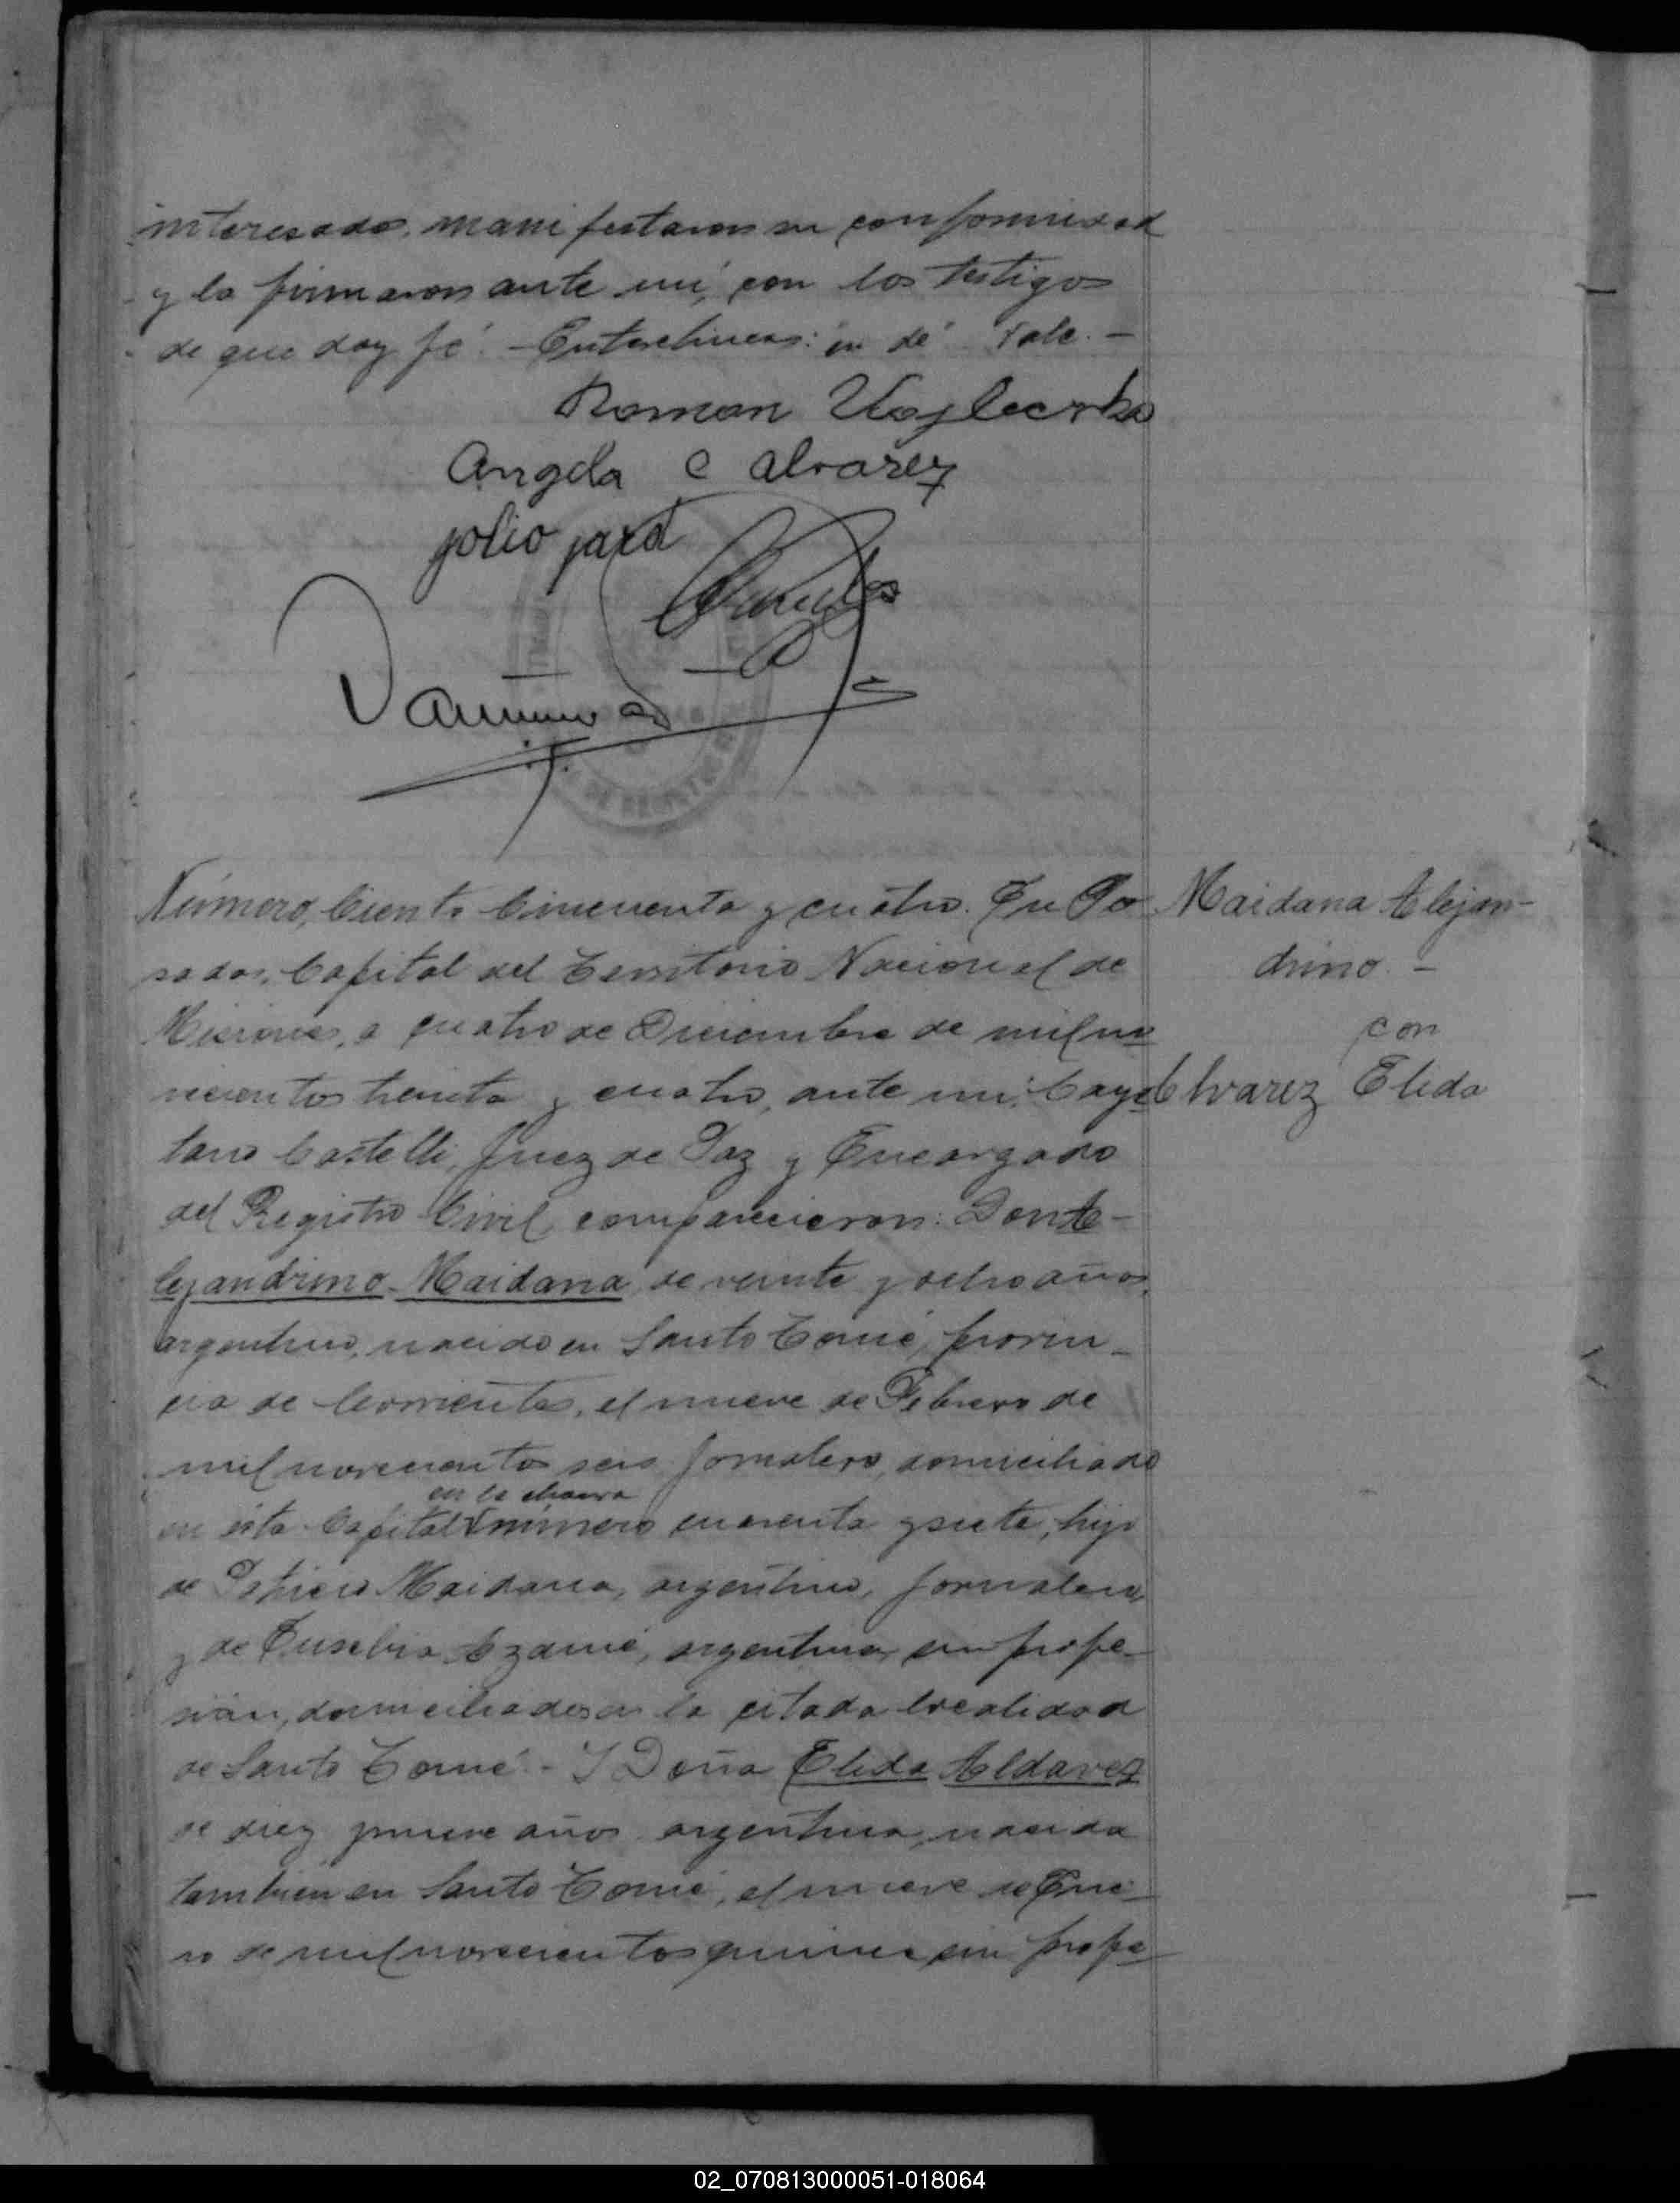 interesados, manifestaron su conformidad
y la firmaron ante mí, con los testigos
de que doy fé. - Entrelineas: en de Vale. -
Roman
Angela C Alvarez
jolio jara
Número, Ciento Cincuenta y cuatro. En Po
sadas, Capital del Territorio Nacional de
Misiones, a cuatro de Diciembre de mil no
vecientos treinta y cuatro, ante mi: Caye
tano Castelli, Juez de Paz y Encargado
del Registro Civil, comparecieron: Don A-
lejandrino Maidana, de veinte y ocho años,
argentino, nacido en Santo Tomé, provin-
cia de Corrientes, el nueve de Febrero de
mil novecientos seis, jornalero, domiciliado
en la chacra
en esta Capital número cuarenta y siete, hijo
de Patricio Maidana, argentino, jornalero,
y de Eusebia, argentina, sin profe-
sión, domiciliados en la citada localidad
de Santo Tomé. - Y Doña Elida Aldavez
de diez y nueve años, argentina, nacida
tambien en Santo Tomé, el nueve de Ene-
ro de mil novecientos quince, sin profe-
Maidana Alejan-
drino. -
con
Alvarez Elida
02_070813000051-018064